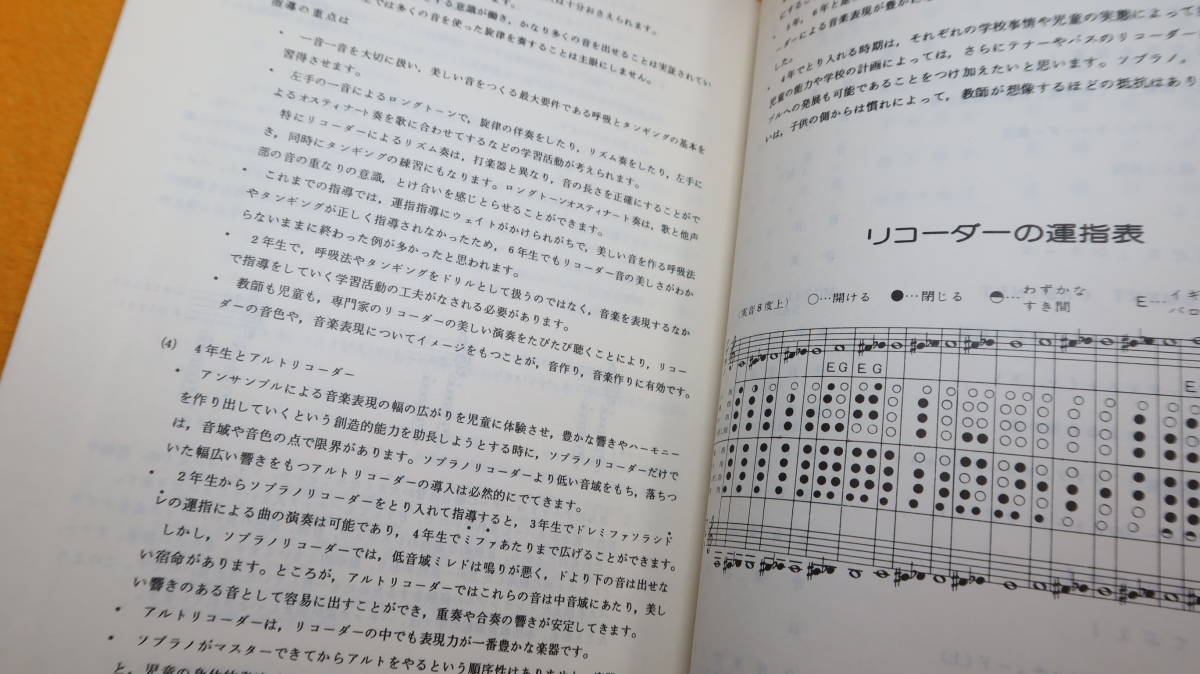 は十分おさえられます。
する意識が働き，かなり多くの音を出せることは実証されてい
生では多くの音を使った旋律を奏することは主眼にしません。
指導の重点は
・ 一音一音を大切に扱い，美しい音をつくる最大要件である呼吸とタンギングの基本を
習得させます。
・ 左手の一音によるロングトーンで，旋律の伴奏をしたり，リズム奏をしたり，左手に
よるオスティナート奏を歌に合わせてするなどの学習活動が考えられます。
特にリコーダーによるリズム奏は，打楽器と異なり，音の長さを正確にすることがで
き，同時にタンギングの練習にもなります。ロングトーンオスティナート奏は，歌と他声
部の音の重なりの意識，とけ合いを感じとらせることができます。
・ これまでの指導では，運指指導にウェイトがかけられがちで，美しい音を作る呼吸法
やタンギングが正しく指導されなかったため，6年生でもリコーダー音の美しさがわか
らないままに終わった例が多かったと思われます。
・ 2年生で，呼吸法やタンギングをドリルとして扱うのではなく，音楽を表現するなか
で指導をしていく学習活動の工夫がなされる必要があります。
・ 教師も児童も，専門家のリコーダーの美しい演奏をたびたび聴くことにより，リコー
ダーの音色や，音楽表現についてイメージをもつことが，音作り，音楽作りに有効です。
(4) 4年生とアルトリコーダー
・ アンサンブルによる音楽表現の幅の広がりを児童に体験させ，豊かな響きやハーモニー
を作り出していくという創造的能力を助長しようとする時に，ソプラノリコーダーだけで
は，音域や音色の点で限界があります。ソプラノリコーダーより低い音域をもち，落ちつ
いた幅広い響きをもつアルトリコーダーの導入は必然的にでてきます。
・ 2年生からソプラノリコーダーをとり入れて指導すると，3年生でドレミファソラシド
レの運指による曲の演奏は可能であり，4年生でミファあたりまで広げることができます。
しかし，ソプラノリコーダーでは，低音域ミレドは鳴りが悪く，ドより下の音は出せな
い宿命があります。ところが，アルトリコーダーではこれらの音は中音域にあたり，美し
い響きのある音として容易に出すことができ，重奏や合奏の響きが安定してきます。
・ アルトリコーダーは，リコーダーの中でも表現力が一番豊かな楽器です。
・ ソプラノがマスターできてからアルトをやるという順序性はありません
と，児童の身体的
・ 5年，6年と
ーダーによる音楽表現が豊かに
した。
4年でとり入れる時期は，それぞれの学校事情や児童の実態によって
児童の能力や学校の計画によっては，さらにテナーやバスのリコーダー
ブルへの発展も可能であることをつけ加えたいと思います。ソプラノ，
いは，子供の側からは慣れによって，教師が想像するほどの抵抗はあり
リコーダーの運指表
(実音8度上) ○…開ける ●…閉じる …わずかなすき間 E…イギ
バロ
E G E G
E